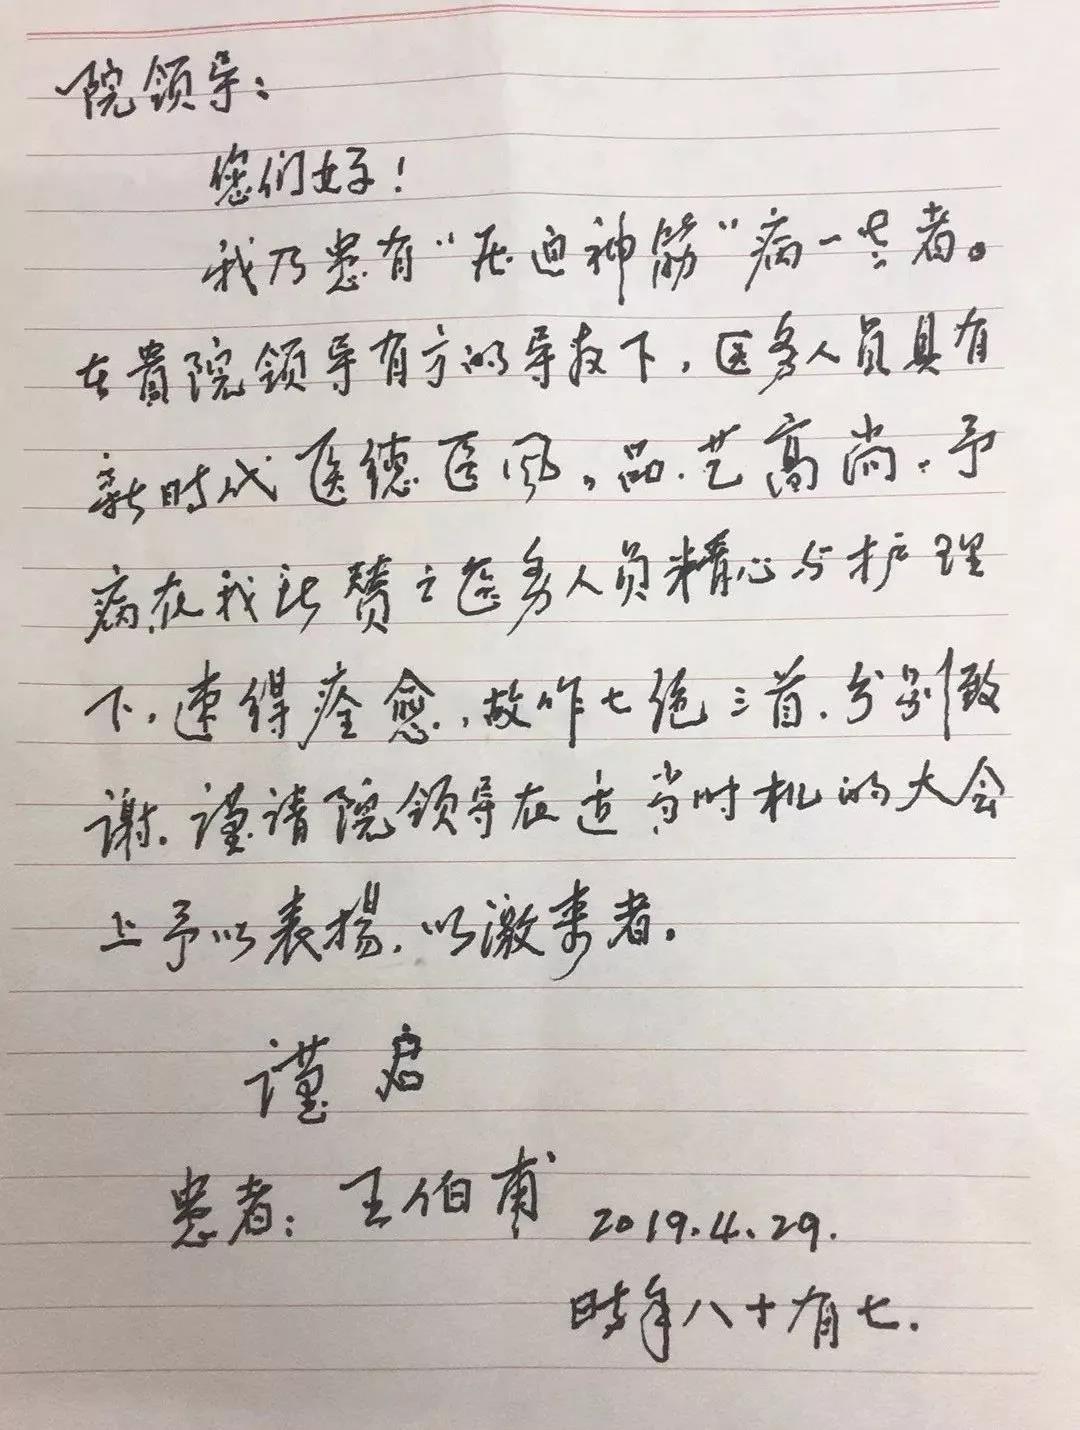 院领导：
您们好！
我乃患有“压迫神筋”病一老者。
在貴院领导有方的导教下，医务人员具有
新时代医德医风，品、艺高尚。予
病在我所賛之医务人员精心与护理
下，速得痊愈，故作七绝三首，分别致
谢。谨请院领导在适当时机的大会
上予以表揚，以激来者。
谨启
患者：王伯甫 2019.4.29.
时年八十有七.